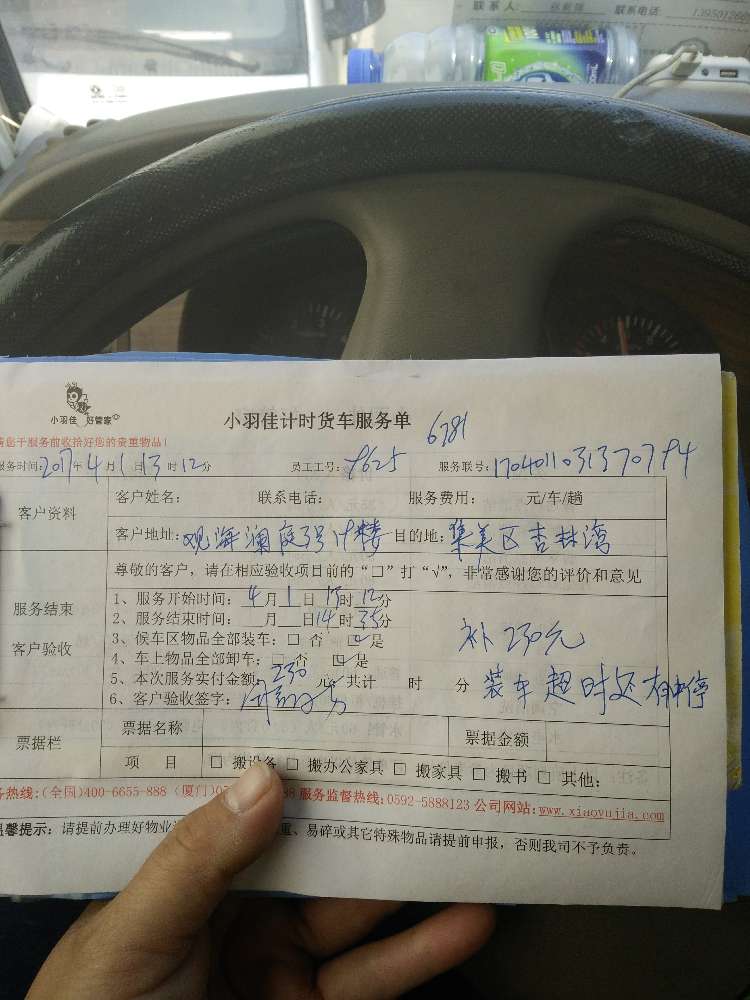 联系人: 联系电话:
小羽佳 好管家
小羽佳计时货车服务单
6781
请您于服务前收拾好您的贵重物品!
服务时间:2017年4月1日13时12分 员工工号:9625 服务联号:1704011031370794
客户资料
客户姓名: 联系电话: 服务费用: 元/车/趟
客户地址:观海澜庭3号楼 目的地:集美区杏林湾
尊敬的客户,请在相应验收项目前的“□”打“√”,非常感谢您的评价和意见
服务结束
客户验收
1、服务开始时间:4月1日13时12分
2、服务结束时间: 月 日14时35分
3、候车区物品全部装车:□ 否 ☑是
4、车上物品全部卸车:□ 否 ☑是
5、本次服务实付金额:230元 共计 时 分
6、客户验收签字:
补230元
装车超时还有中停
票据栏
票据名称 票据金额
项 目 □ 搬设备 □ 搬办公家具 □ 搬家具 □ 搬书 □ 其他:
务热线:(全国)400-6655-888 (厦门)05 88 服务监督热线:0592-5888123 公司网站:www.xiaoyujia.com
温馨提示:请提前办理好物业 重、易碎或其它特殊物品请提前申报,否则我司不予负责。